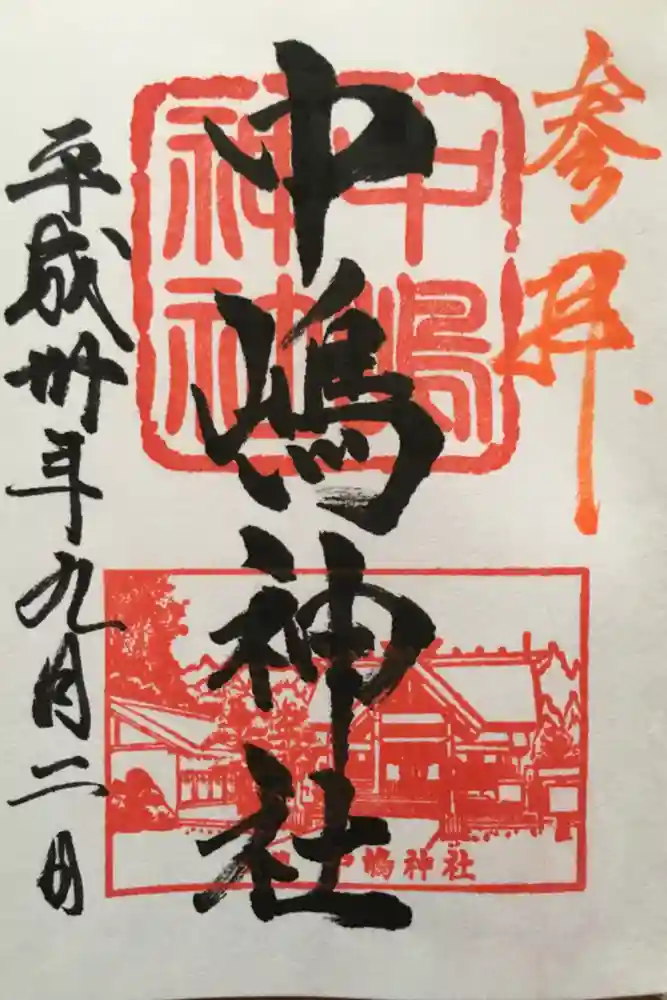 参拝
中嶋
神社
中嶋神社
中嶋神社
平成卅年九月二日